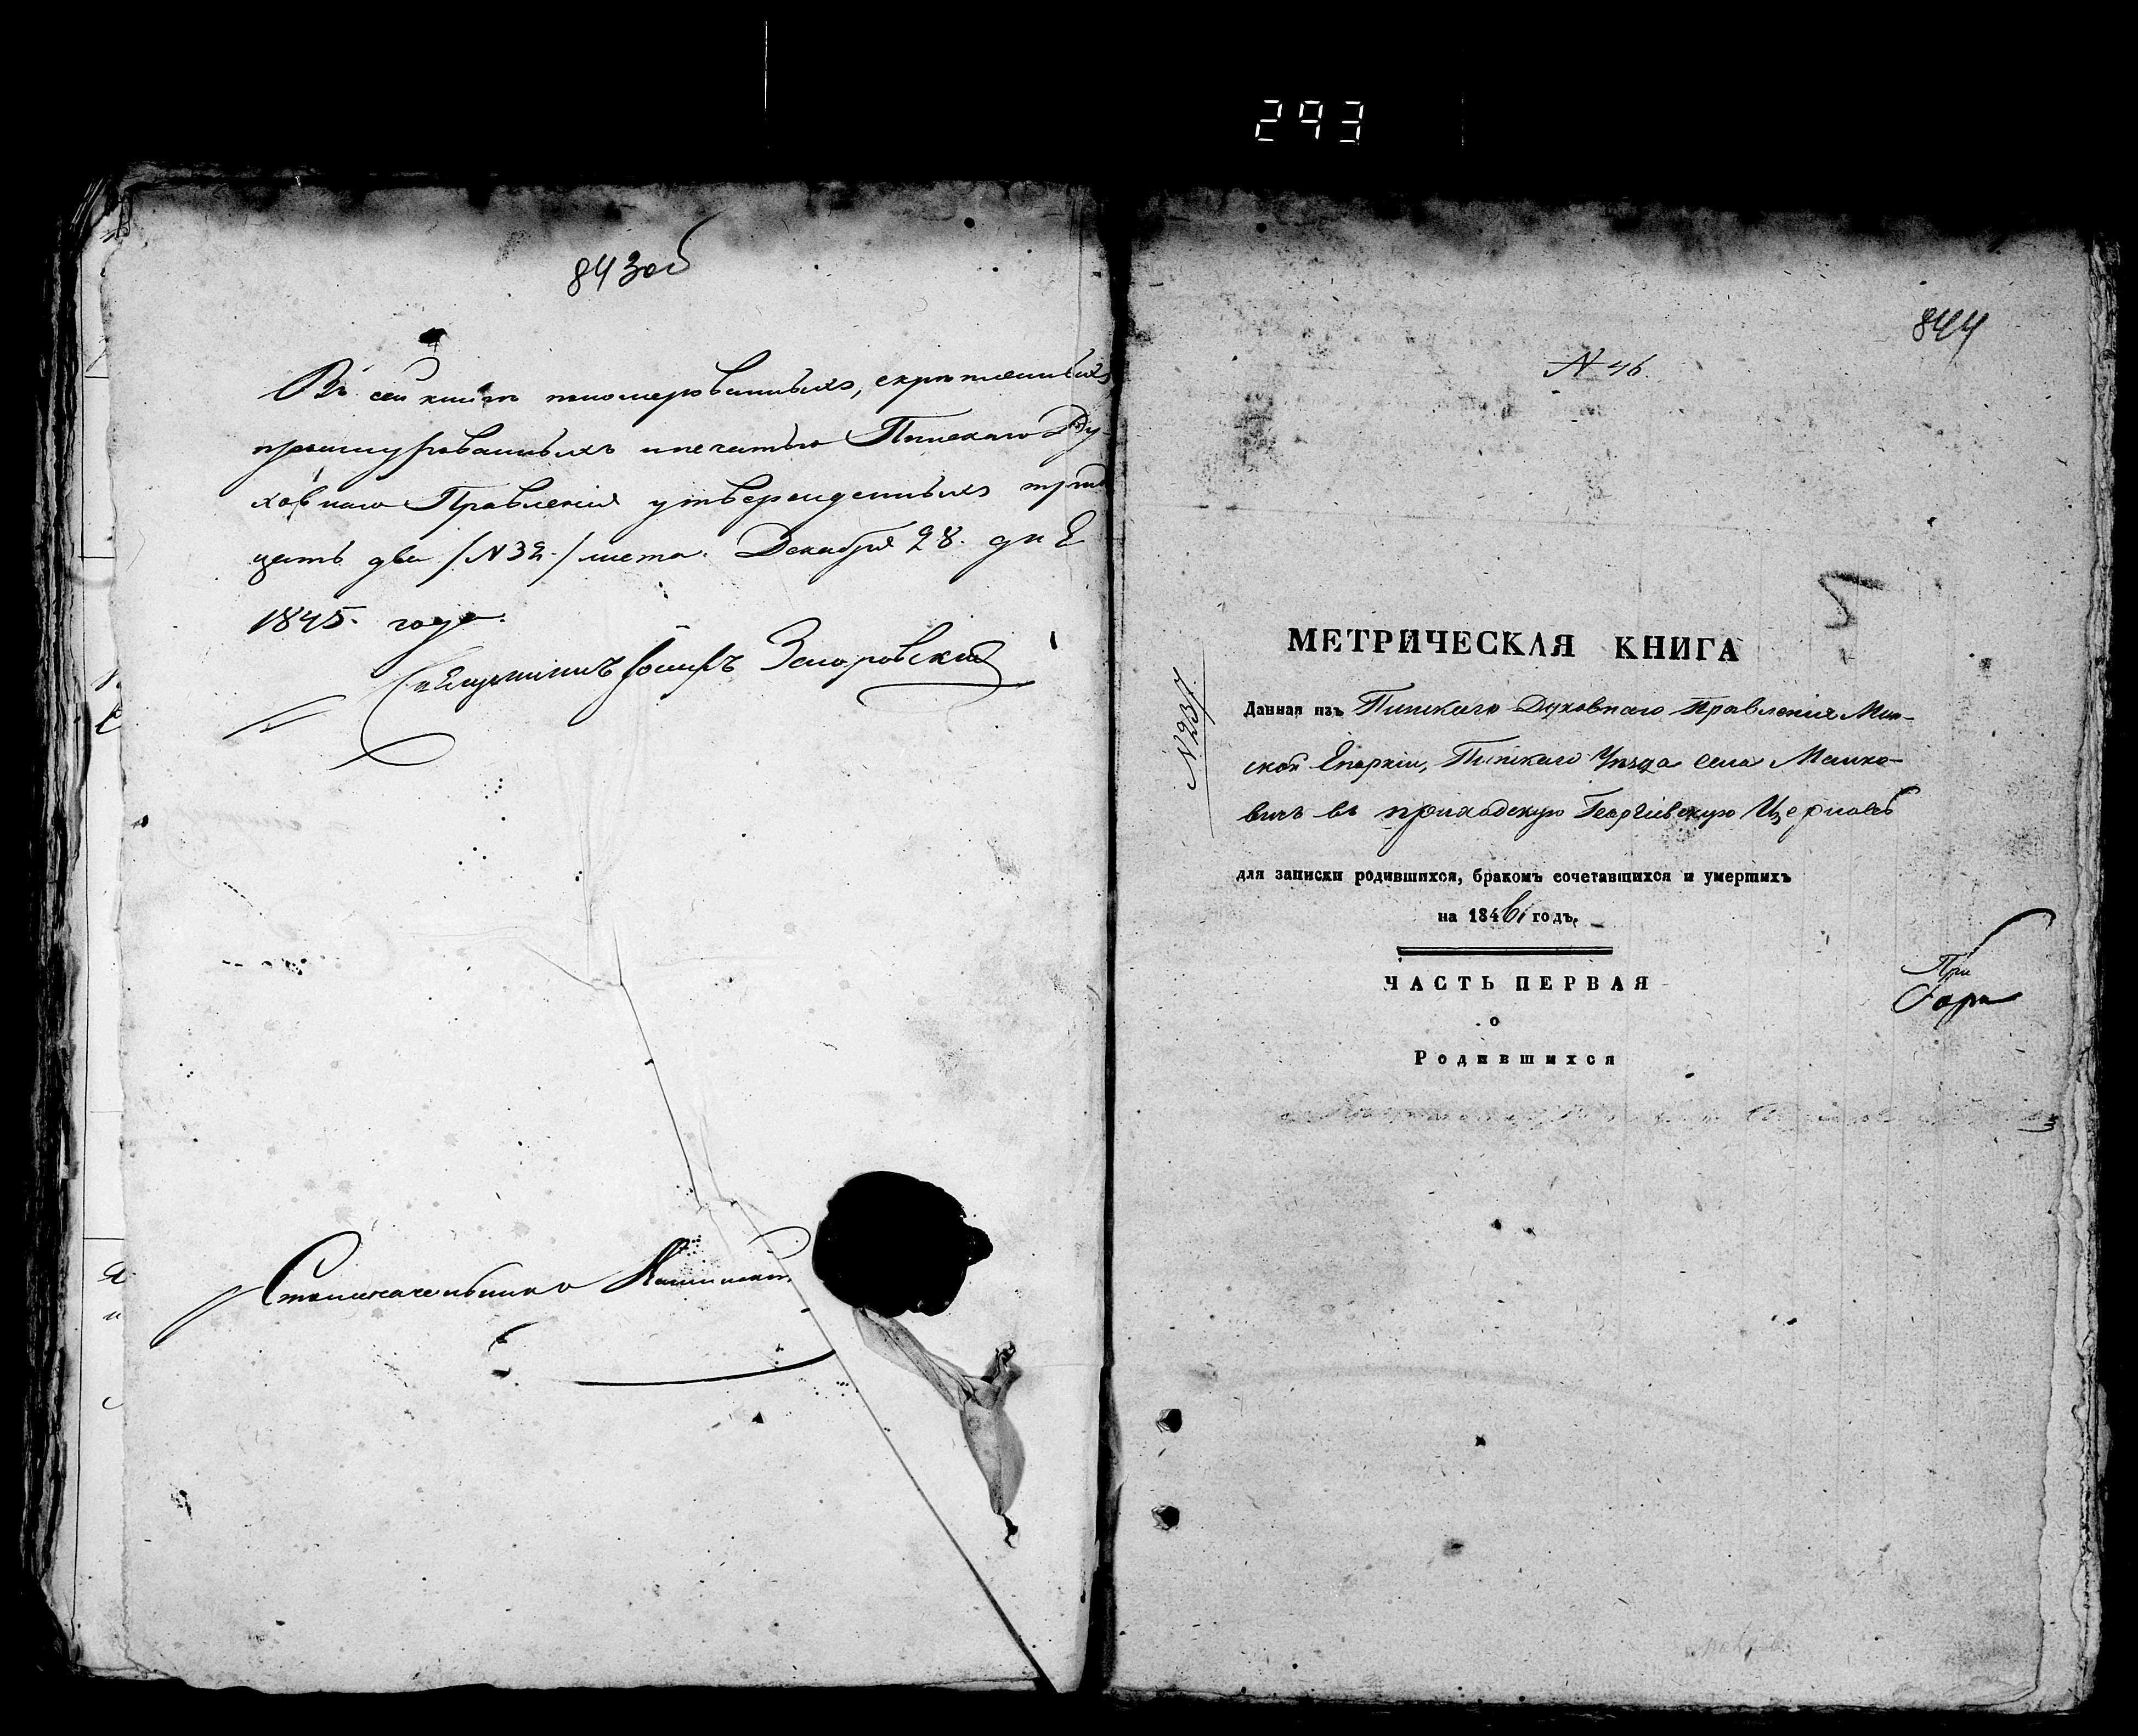 293
843 об
Въ сей книгѣ пномерованныхъ, скрѣпленныхъ
прошнурованныхъ и печатью Пинскаго Ду-
ховнаго Правленія утвержденныхъ трид
цать два /N 32./ листа. Декабря 28. дня
1845. года.
Священникъ Іосифъ
Столоначальникъ
844
N 46.
5
МЕТРИЧЕСКАЯ КНИГА
N 237.
Данная изъ Пинскаго Духовнаго Правленія Мин-
ской Епархіи, Пинскаго Уѣзда села Малко-
вичъ въ приходскую Георгіевскую Церковь
для записки родившихся, бракомъ сочетавшихся и умершихъ
на 1846 годъ.
ЧАСТЬ ПЕРВАЯ
о
Родившихся
При